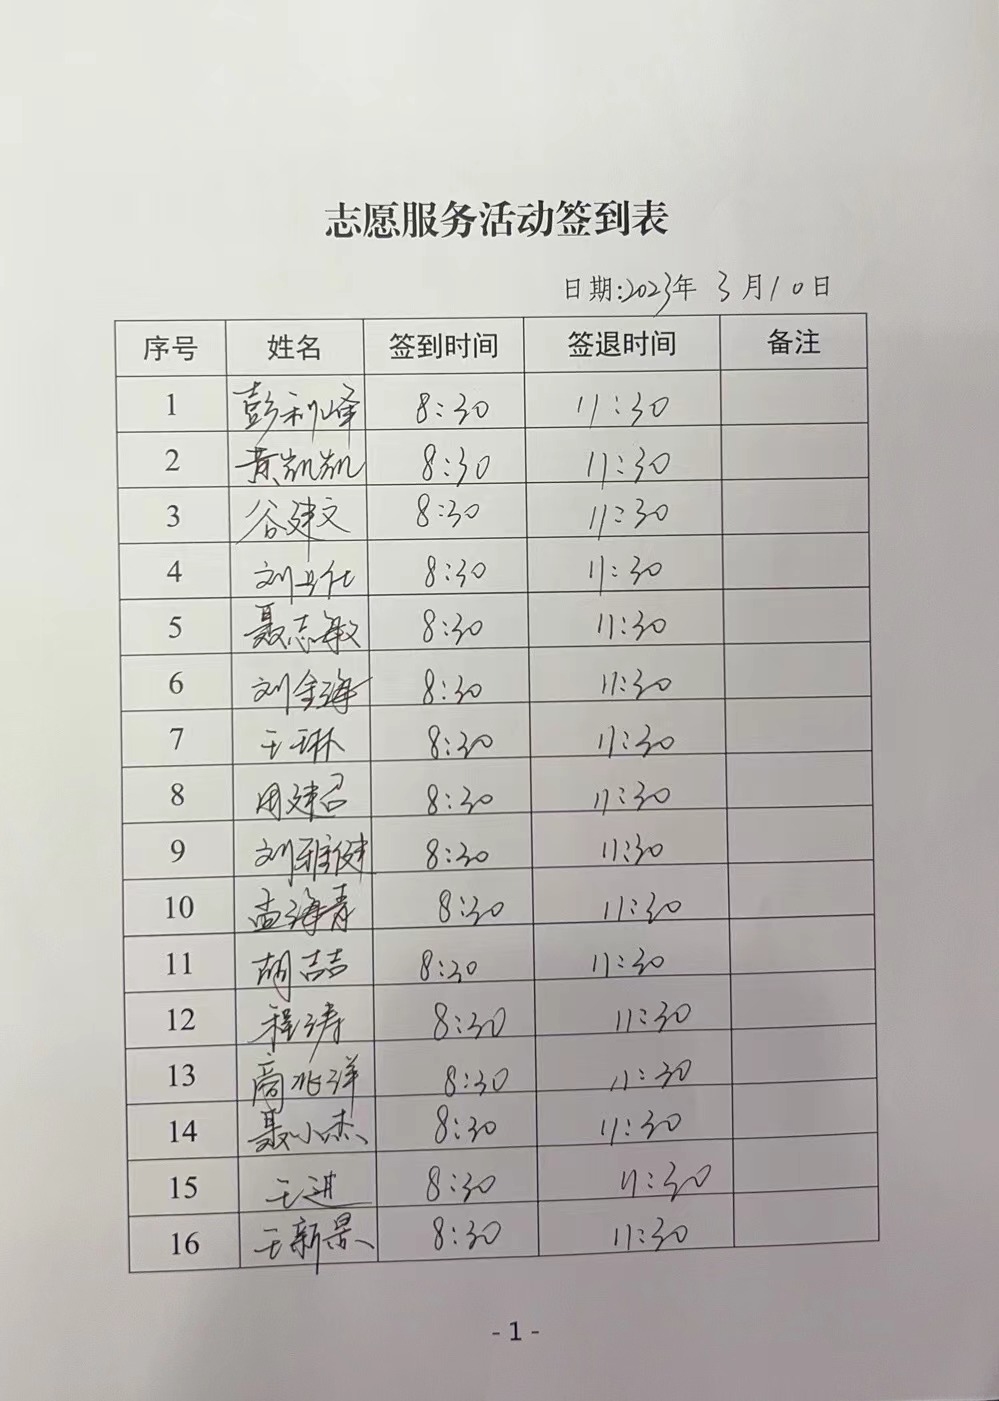 志愿服务活动签到表
日期:2023年 3月10日
序号 姓名 签到时间 签退时间 备注
1 彭利峰 8:30 11:30
2 黄凯凯 8:30 11:30
3 谷建文 8:30 11:30
4 刘卫仕 8:30 11:30
5 聂志敏 8:30 11:30
6 刘金海 8:30 11:30
7 王琳 8:30 11:30
8 周建召 8:30 11:30
9 刘雅健 8:30 11:30
10 孟海青 8:30 11:30
11 胡喆 8:30 11:30
12 程涛 8:30 11:30
13 商兆洋 8:30 11:30
14 聂小杰 8:30 11:30
15 王进 8:30 11:30
16 王新景 8:30 11:30
- 1 -